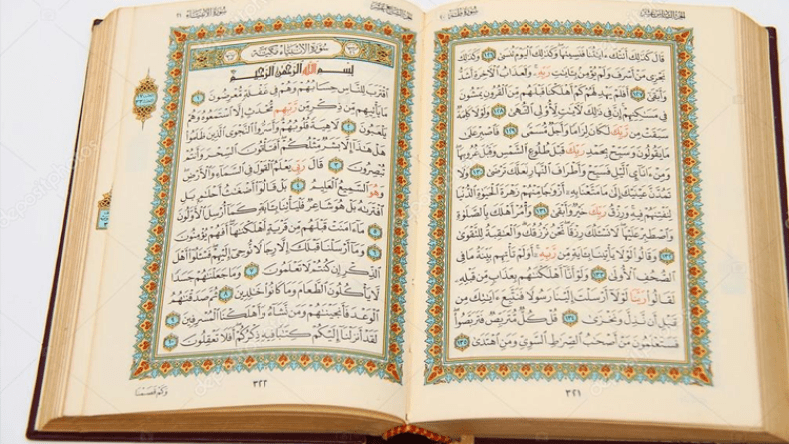 الجزء السادس عشر
سورة طه
قَالَ كَذَٰلِكَ أَتَتْكَ ءَايَٰتُنَا فَنَسِيتَهَا وَكَذَٰلِكَ ٱلْيَوْمَ تُنسَىٰ ١٢٦ وَكَذَٰلِكَ
نَجْزِى مَنْ أَسْرَفَ وَلَمْ يُؤْمِنۢ بِـَٔايَٰتِ رَبِّهِۦ وَلَعَذَابُ ٱلْءَاخِرَةِ أَشَدُّ
وَأَبْقَىٰٓ ١٢٧ أَفَلَمْ يَهْدِ لَهُمْ كَمْ أَهْلَكْنَا قَبْلَهُم مِّنَ ٱلْقُرُونِ يَمْشُونَ
فِى مَسَٰكِنِهِمْ إِنَّ فِى ذَٰلِكَ لَءَايَٰتٍ لِّأُو۟لِى ٱلنُّهَىٰ ١٢٨ وَلَوْلَا كَلِمَةٌ
سَبَقَتْ مِن رَّبِّكَ لَكَانَ لِزَامًا وَأَجَلٌ مُّسَمًّى ١٢٩ فَٱصْبِرْ عَلَىٰ
مَا يَقُولُونَ وَسَبِّحْ بِحَمْدِ رَبِّكَ قَبْلَ طُلُوعِ ٱلشَّمْسِ وَقَبْلَ غُرُوبِهَا
وَمِنْ ءَانَآئِ ٱلَّيْلِ فَسَبِّحْ وَأَطْرَافَ ٱلنَّهَارِ لَعَلَّكَ تَرْضَىٰ ١٣٠ وَلَا
تَمُدَّنَّ عَيْنَيْكَ إِلَىٰ مَا مَتَّعْنَا بِهِۦٓ أَزْوَٰجًا مِّنْهُمْ زَهْرَةَ ٱلْحَيَوٰةِ ٱلدُّنْيَا
لِنَفْتِنَهُمْ فِيهِ وَرِزْقُ رَبِّكَ خَيْرٌ وَأَبْقَىٰ ١٣١ وَأْمُرْ أَهْلَكَ بِٱلصَّلَوٰةِ
وَٱصْطَبِرْ عَلَيْهَا لَا نَسْـَٔلُكَ رِزْقًا نَّحْنُ نَرْزُقُكَ وَٱلْعَٰقِبَةُ لِلتَّقْوَىٰ
١٣٢ وَقَالُوا۟ لَوْلَا يَأْتِينَا بِـَٔايَةٍ مِّن رَّبِّهِۦٓ أَوَلَمْ تَأْتِهِم بَيِّنَةُ مَا فِى
ٱلصُّحُفِ ٱلْأُولَىٰ ١٣٣ وَلَوْ أَنَّآ أَهْلَكْنَٰهُم بِعَذَابٍ مِّن قَبْلِهِۦ
لَقَالُوا۟ رَبَّنَا لَوْلَآ أَرْسَلْتَ إِلَيْنَا رَسُولًا فَنَتَّبِعَ ءَايَٰتِكَ مِن
قَبْلِ أَن نَّذِلَّ وَنَخْزَىٰ ١٣٤ قُلْ كُلٌّ مُّتَرَبِّصٌ فَتَرَبَّصُوا۟
فَسَتَعْلَمُونَ مَنْ أَصْحَٰبُ ٱلصِّرَٰطِ ٱلسَّوِىِّ وَمَنِ ٱهْتَدَىٰ ١٣٥
٣٢١
الجزء السابع عشر
سورة الأنبياء ٢١
سورة الأنبياء مكية
بِسْمِ ٱللَّهِ ٱلرَّحْمَٰنِ ٱلرَّحِيمِ
ٱقْتَرَبَ لِلنَّاسِ حِسَابُهُمْ وَهُمْ فِى غَفْلَةٍ مُّعْرِضُونَ ١
مَا يَأْتِيهِم مِّن ذِكْرٍ مِّن رَّبِّهِم مُّحْدَثٍ إِلَّا ٱسْتَمَعُوهُ وَهُمْ
يَلْعَبُونَ ٢ لَاهِيَةً قُلُوبُهُمْ وَأَسَرُّوا۟ ٱلنَّجْوَى ٱلَّذِينَ ظَلَمُوا۟
هَلْ هَٰذَآ إِلَّا بَشَرٌ مِّثْلُكُمْ أَفَتَأْتُونَ ٱلسِّحْرَ وَأَنتُمْ
تُبْصِرُونَ ٣ قَالَ رَبِّى يَعْلَمُ ٱلْقَوْلَ فِى ٱلسَّمَآءِ وَٱلْأَرْضِ
وَهُوَ ٱلسَّمِيعُ ٱلْعَلِيمُ ٤ بَلْ قَالُوٓا۟ أَضْغَٰثُ أَحْلَٰمٍۭ بَلِ
ٱفْتَرَىٰهُ بَلْ هُوَ شَاعِرٌ فَلْيَأْتِنَا بِـَٔايَةٍ كَمَآ أُرْسِلَ ٱلْأَوَّلُونَ
٥ مَآ ءَامَنَتْ قَبْلَهُم مِّن قَرْيَةٍ أَهْلَكْنَٰهَآ أَفَهُمْ يُؤْمِنُونَ
٦ وَمَآ أَرْسَلْنَا قَبْلَكَ إِلَّا رِجَالًا نُّوحِىٓ إِلَيْهِمْ فَسْـَٔلُوٓا۟ أَهْلَ
ٱلذِّكْرِ إِن كُنتُمْ لَا تَعْلَمُونَ ٧ وَمَا جَعَلْنَٰهُمْ جَسَدًا
لَّا يَأْكُلُونَ ٱلطَّعَامَ وَمَا كَانُوا۟ خَٰلِدِينَ ٨ ثُمَّ صَدَقْنَٰهُمُ
ٱلْوَعْدَ فَأَنجَيْنَٰهُمْ وَمَن نَّشَآءُ وَأَهْلَكْنَا ٱلْمُسْرِفِينَ ٩
لَقَدْ أَنزَلْنَآ إِلَيْكُمْ كِتَٰبًا فِيهِ ذِكْرُكُمْ أَفَلَا تَعْقِلُونَ ١٠
وكم قصمنا
٣٢٢
depositphotos